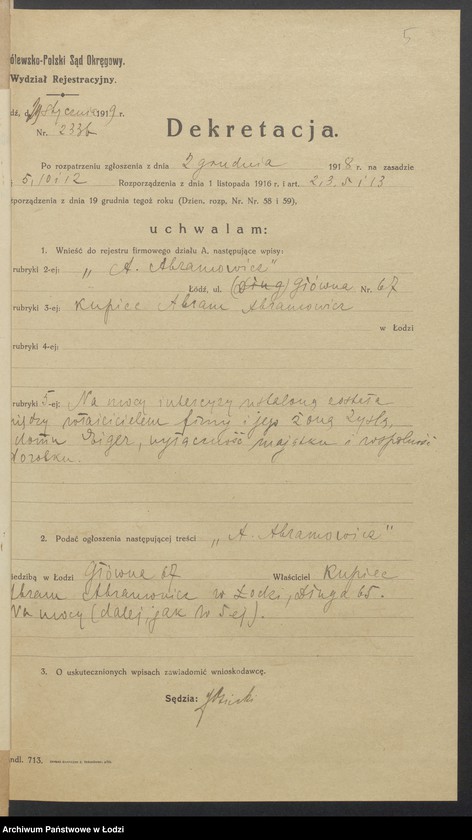 5
ólewsko-Polski Sąd Okręgowy.
Wydział Rejestracyjny.
dź, d. stycznia 1919 r.
Nr. 2336
Dekretacja.
Po rozpatrzeniu zgłoszenia z dnia 2 grudnia 1918 r. na zasadzie
5, 10 i 12 Rozporządzenia z dnia 1 listopada 1916 r. i art. 2, 3, 5 i 13
zporządzenia z dnia 19 grudnia tegoż roku (Dzien. rozp. Nr. Nr. 58 i 59),
uchwalam:
1. Wnieść do rejestru firmowego działu A. następujące wpisy:
rubryki 2-ej: „A. Abramowicz"
Łódź, ul. (Dług) Główna Nr. 67
rubryki 3-ej: Kupiec Abram Abramowicz
w Łodzi
rubryki 4-ej:
rubryki 5-ej: Na mocy intercyzy ustaloną została
między właścicielem firmy i jego żoną Zysłą
domu Eiger, wyłączność majątku i wspólność
dorobku.
2. Podać ogłoszenia następującej treści „A. Abramowicz"
iedzibą w Łodzi Główna 67 Właściciel Kupiec
bram Abramowicz w Łodzi, Długa 65.
Na mocy (dalej, jak w 5 ej).
3. O uskutecznionych wpisach zawiadomić wnioskodawcę.
Sędzia:
ndl. 713.
Archiwum Państwowe w Łodzi